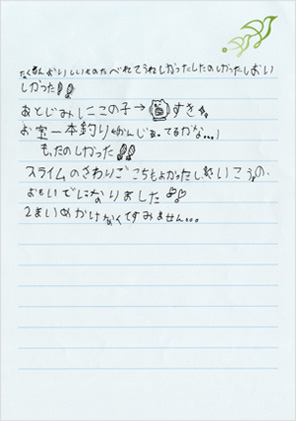 たくさんおいしいものたべれてうれしかったしたのしかったしおい
しかった!!
あとじみにこの子→すき
お宝一本釣り(かんじあってるかな...)
もったのしかった!!
スライムのさわりごこちもよかったし、さいこうの、
おもいでになりました♡
2まいめかけなくてすみません...